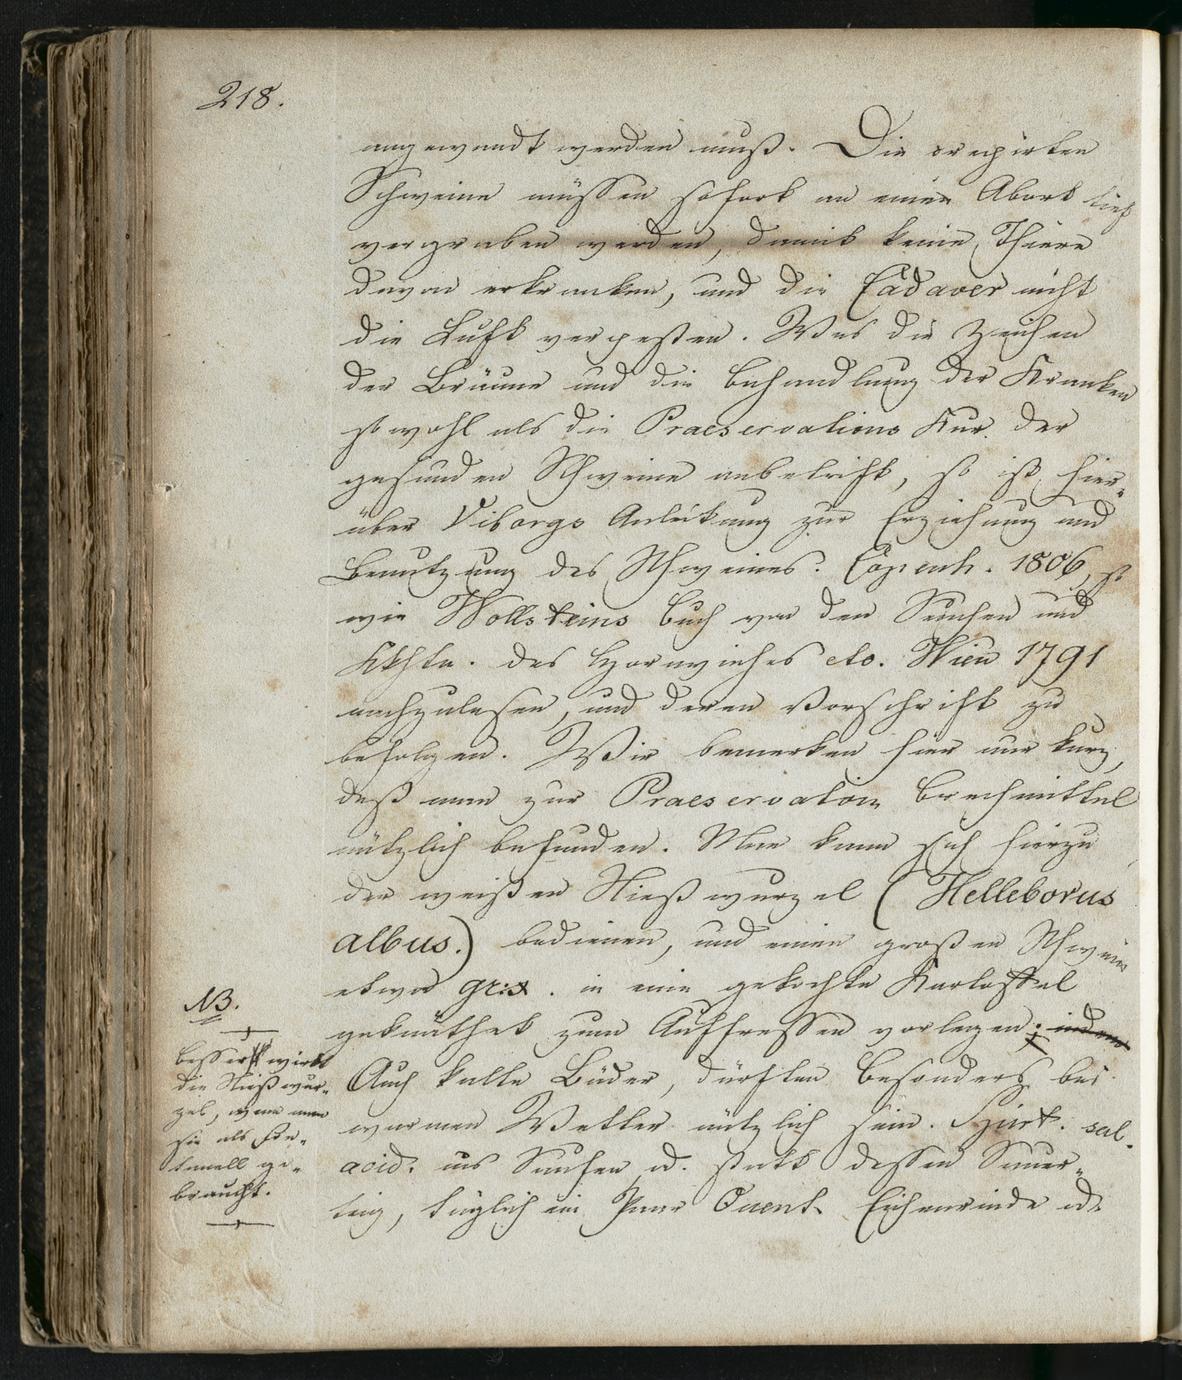 218.
angewandt werden muß. Die crepirten
Schweine müssen sofort an einen Abort tief
vergraben werden, damit keine Thiere
davon erkranken, und die Cadaver nicht
die Luft verpesten. Was die Zeichen
der Bräune und die Behandlung der Kranken
sowohl als die Praeservations Kur der
gesunden Schweine anbetrift, so ist hier-
über Viborgs Anleitung zur Erziehung und
Benutzung des Schweines. Copenh. 1806, so
wie Wollsteins Buch von den Seuchen und
des Hornviehes etc. Wien 1791
nachzulesen, und deren Vorschrift zu
befolgen. Wir bemerken hier nur kurz,
daß man zur Praeservation Brechmittel
nützlich befunden. Man kann sich hierzu
der weißen Nießwurzel (Helleborus
albus.) bedienen, und einen großen Schwein
etwa in eine gekochte Kartoffel
geknäthet zum Auffressen vorlegen; indem
Auch kalte Bäder, dürften besonders bei
warmen Wetter nützlich sein. Spirt. sal.
acid. ins Saufen od. statt dessen Sauer-
teig, täglich ein Paar Quent. Eichenrinde od.
NB.
besser wirkt
die Nießwur-
zel, wenn man
sie als Fon-
tanell ge-
braucht.